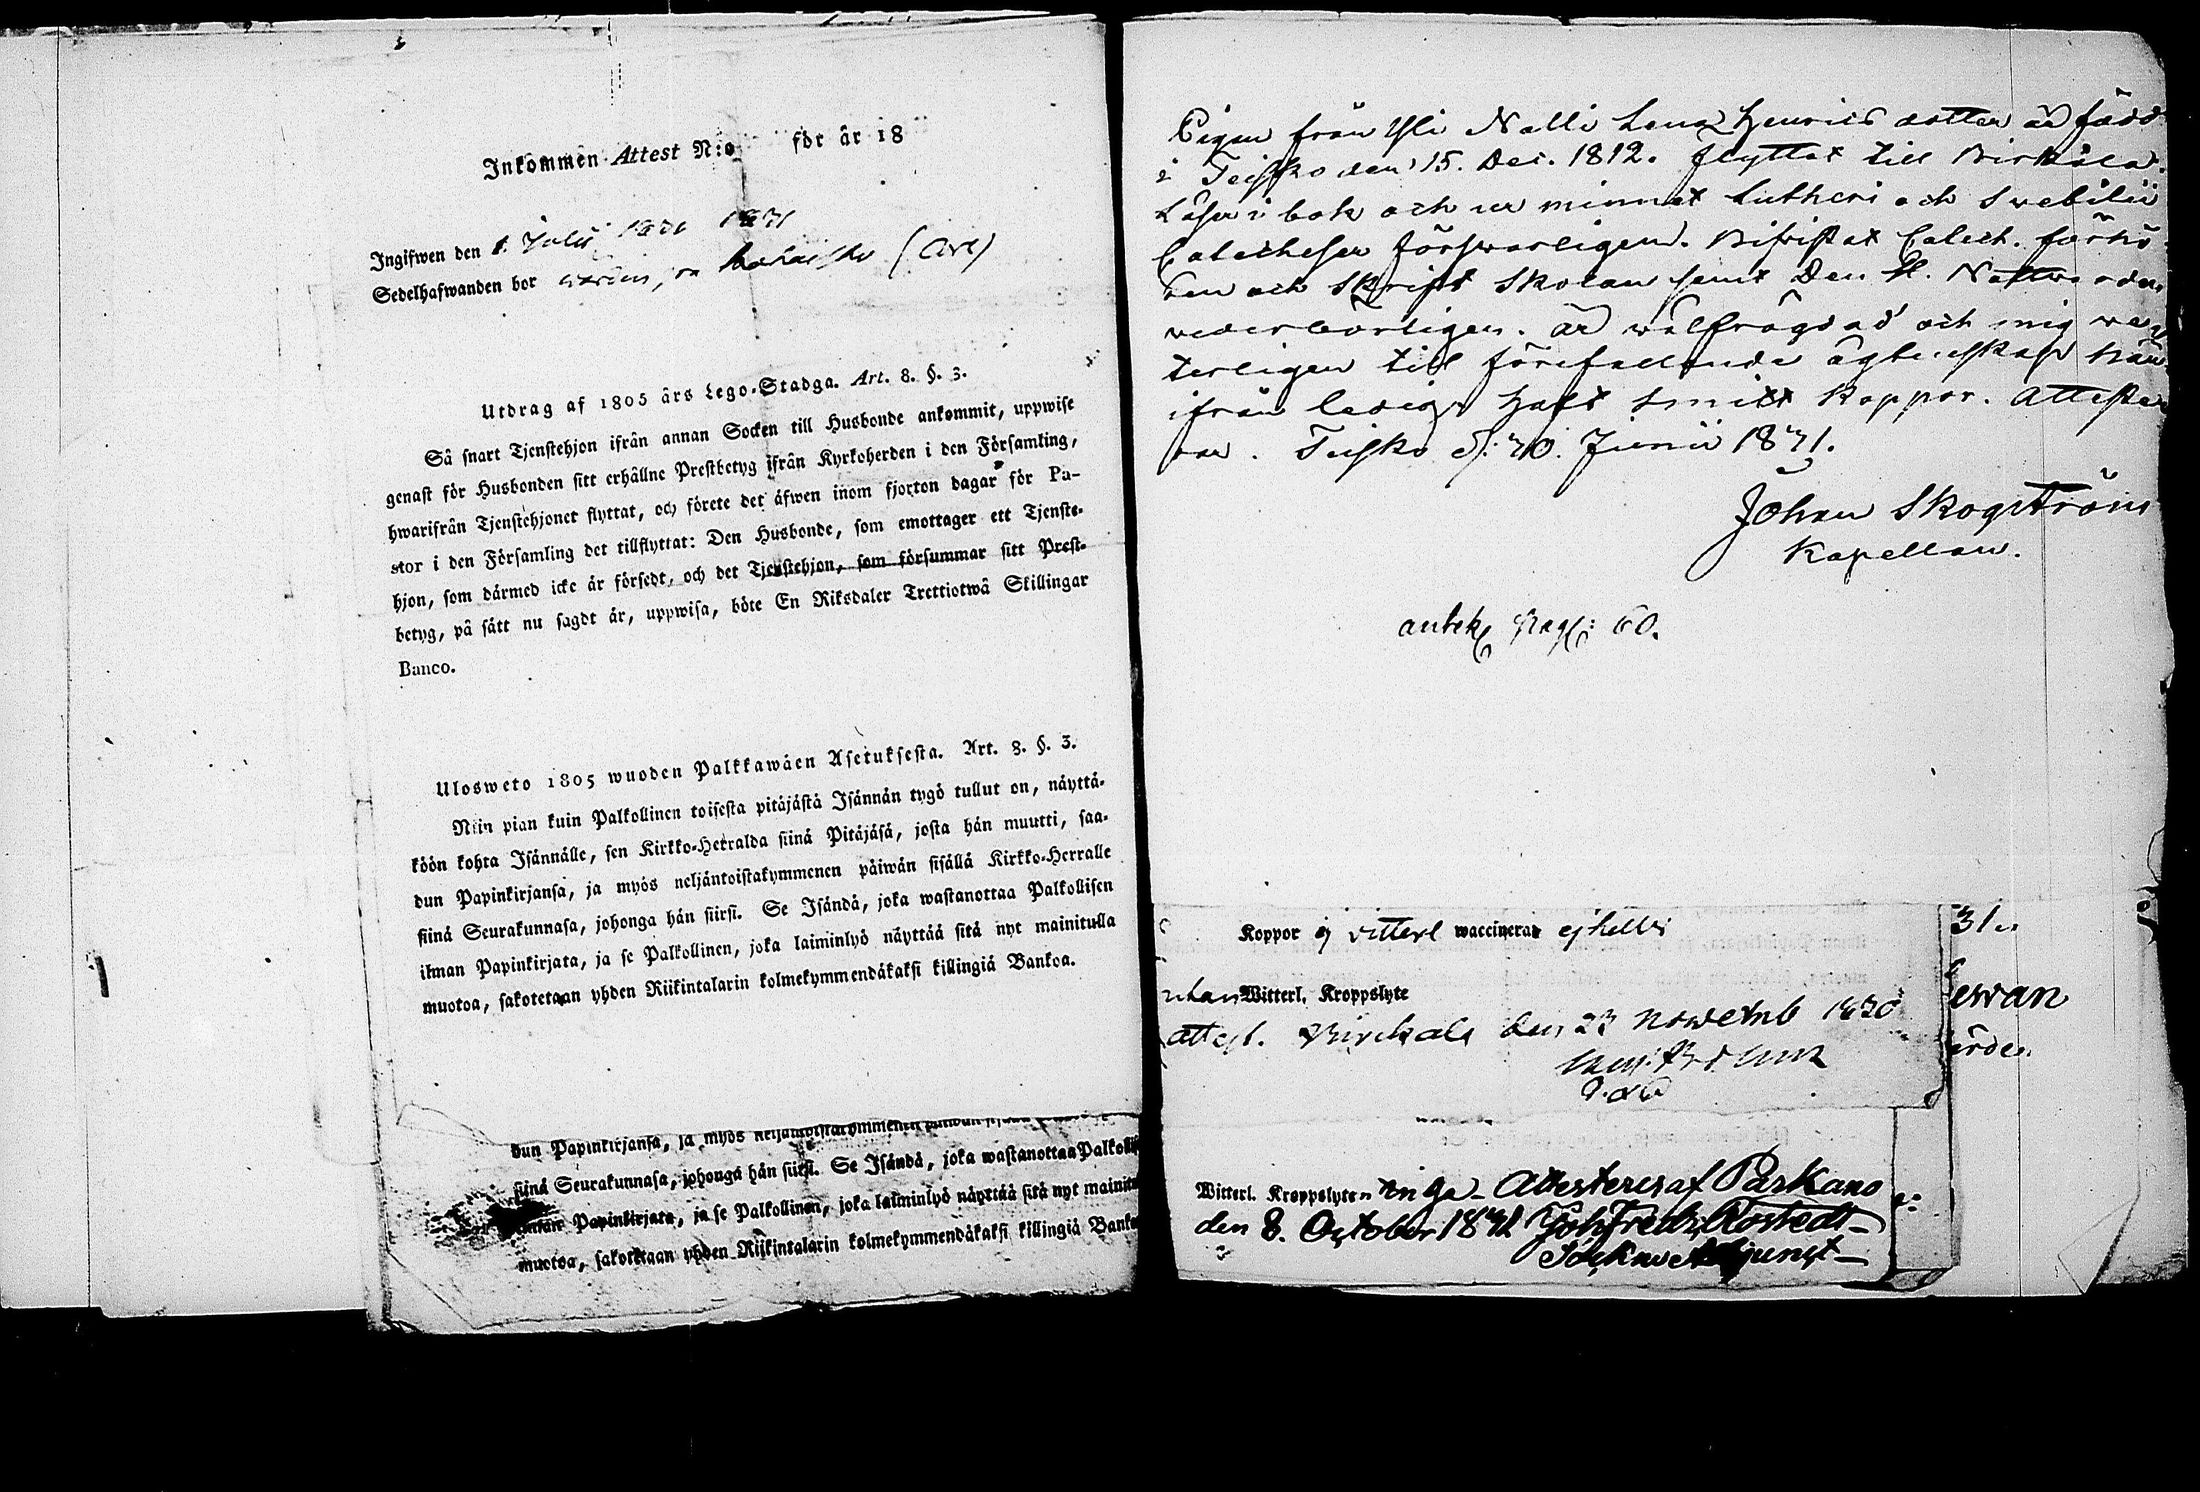 Inkommen Attest N:o för år 18
Ingifwen den 1 Julii 1831
Sedelhafwanden bor
Utdrag af 1805 års Lego-Stadga. Art. 8. §. 3.
Så snart Tjenstehjon ifrån annan Socken till Husbonde ankommit, uppwise
genast för Husbonden sitt erhållne Prestbetyg ifrån Kyrkoherden i den Församling,
hwarifrån Tjenstehjonet flyttat, och förete det äfwen inom fjorton dagar för Pa-
stor i den Församling det tillflyttat: Den Husbonde, som emottager ett Tjenste-
hjon, som därmed icke är försedt, och det Tjenstehjon, som försummar sitt Prest-
betyg, på sätt nu sagdt är, uppwisa, böte En Riksdaler Trettiotwå Skillingar
Banco.
Ulosweto 1805 wuoden Palkkawäen Asetuksesta. Art. 8. §. 3.
Niin pian kuin Palkollinen toisesta pitäjästä Isännän tygö tullut on, näyttä-
köön kohta Isännälle, sen Kirkko-Herralda siinä Pitäjäsä, josta hän muutti, saa-
dun Papinkirjansa, ja myös neljäntoistakymmenen päiwän sisällä Kirkko-Herralle
siinä Seurakunnasa, johonga hän siirsi. Se Isändä, joka wastanottaa Palkollisen
ilman Papinkirjata, ja se Palkollinen, joka laiminlyö näyttää sitä nyt mainitulla
muotoa, sakotetaan yhden Riikintalarin kolmekymmendäkaksi killingiä Bankoa.
dun Papinkirjansa, ja myös neljäntoistakymmenen
siinä Seurakunnasa, johonga hän siirsi. Se Isändä, joka wastanottaa Palkolli
ilman Papinkirjata, ja se Palkollinen, joka laiminlyö näyttää sitä nyt mainitu
muotoa, sakotetaan yhden Riikintalarin kolmekymmendäkaksi killingiä Banko
Pigan från Yli Nalli Lena Henrics dotter är född
i Teisko den 15. Dec. 1812. flyttat till Birkala.
Läser i bok och ur minnet Lutheri och Svebilii
Catecheser försvarligen. Bivistat Catech. förhö-
ren och Skrift Skolan samt Den H. Nattvarden
vederbörligen. är välfrägdad och mig ve-
terligen till förefallande ägtenskap här-
ifrån ledig. haft Smitt koppor. Atteste-
rar. Teisko d: 30. Junii 1831.
Johan Skogström
Kapellan.
antek pag: 60.
Koppor ej vitterl waccinerad ej heller
utan Witterl. Kroppslyte
attest. Birckala den 23 Novemb 1830
31
ewan
örden
Witterl. Kroppslyten inga Attesteras af Parkano
den 8. October 1831 Joh Fredr Rostedt
Sockne Adjunct